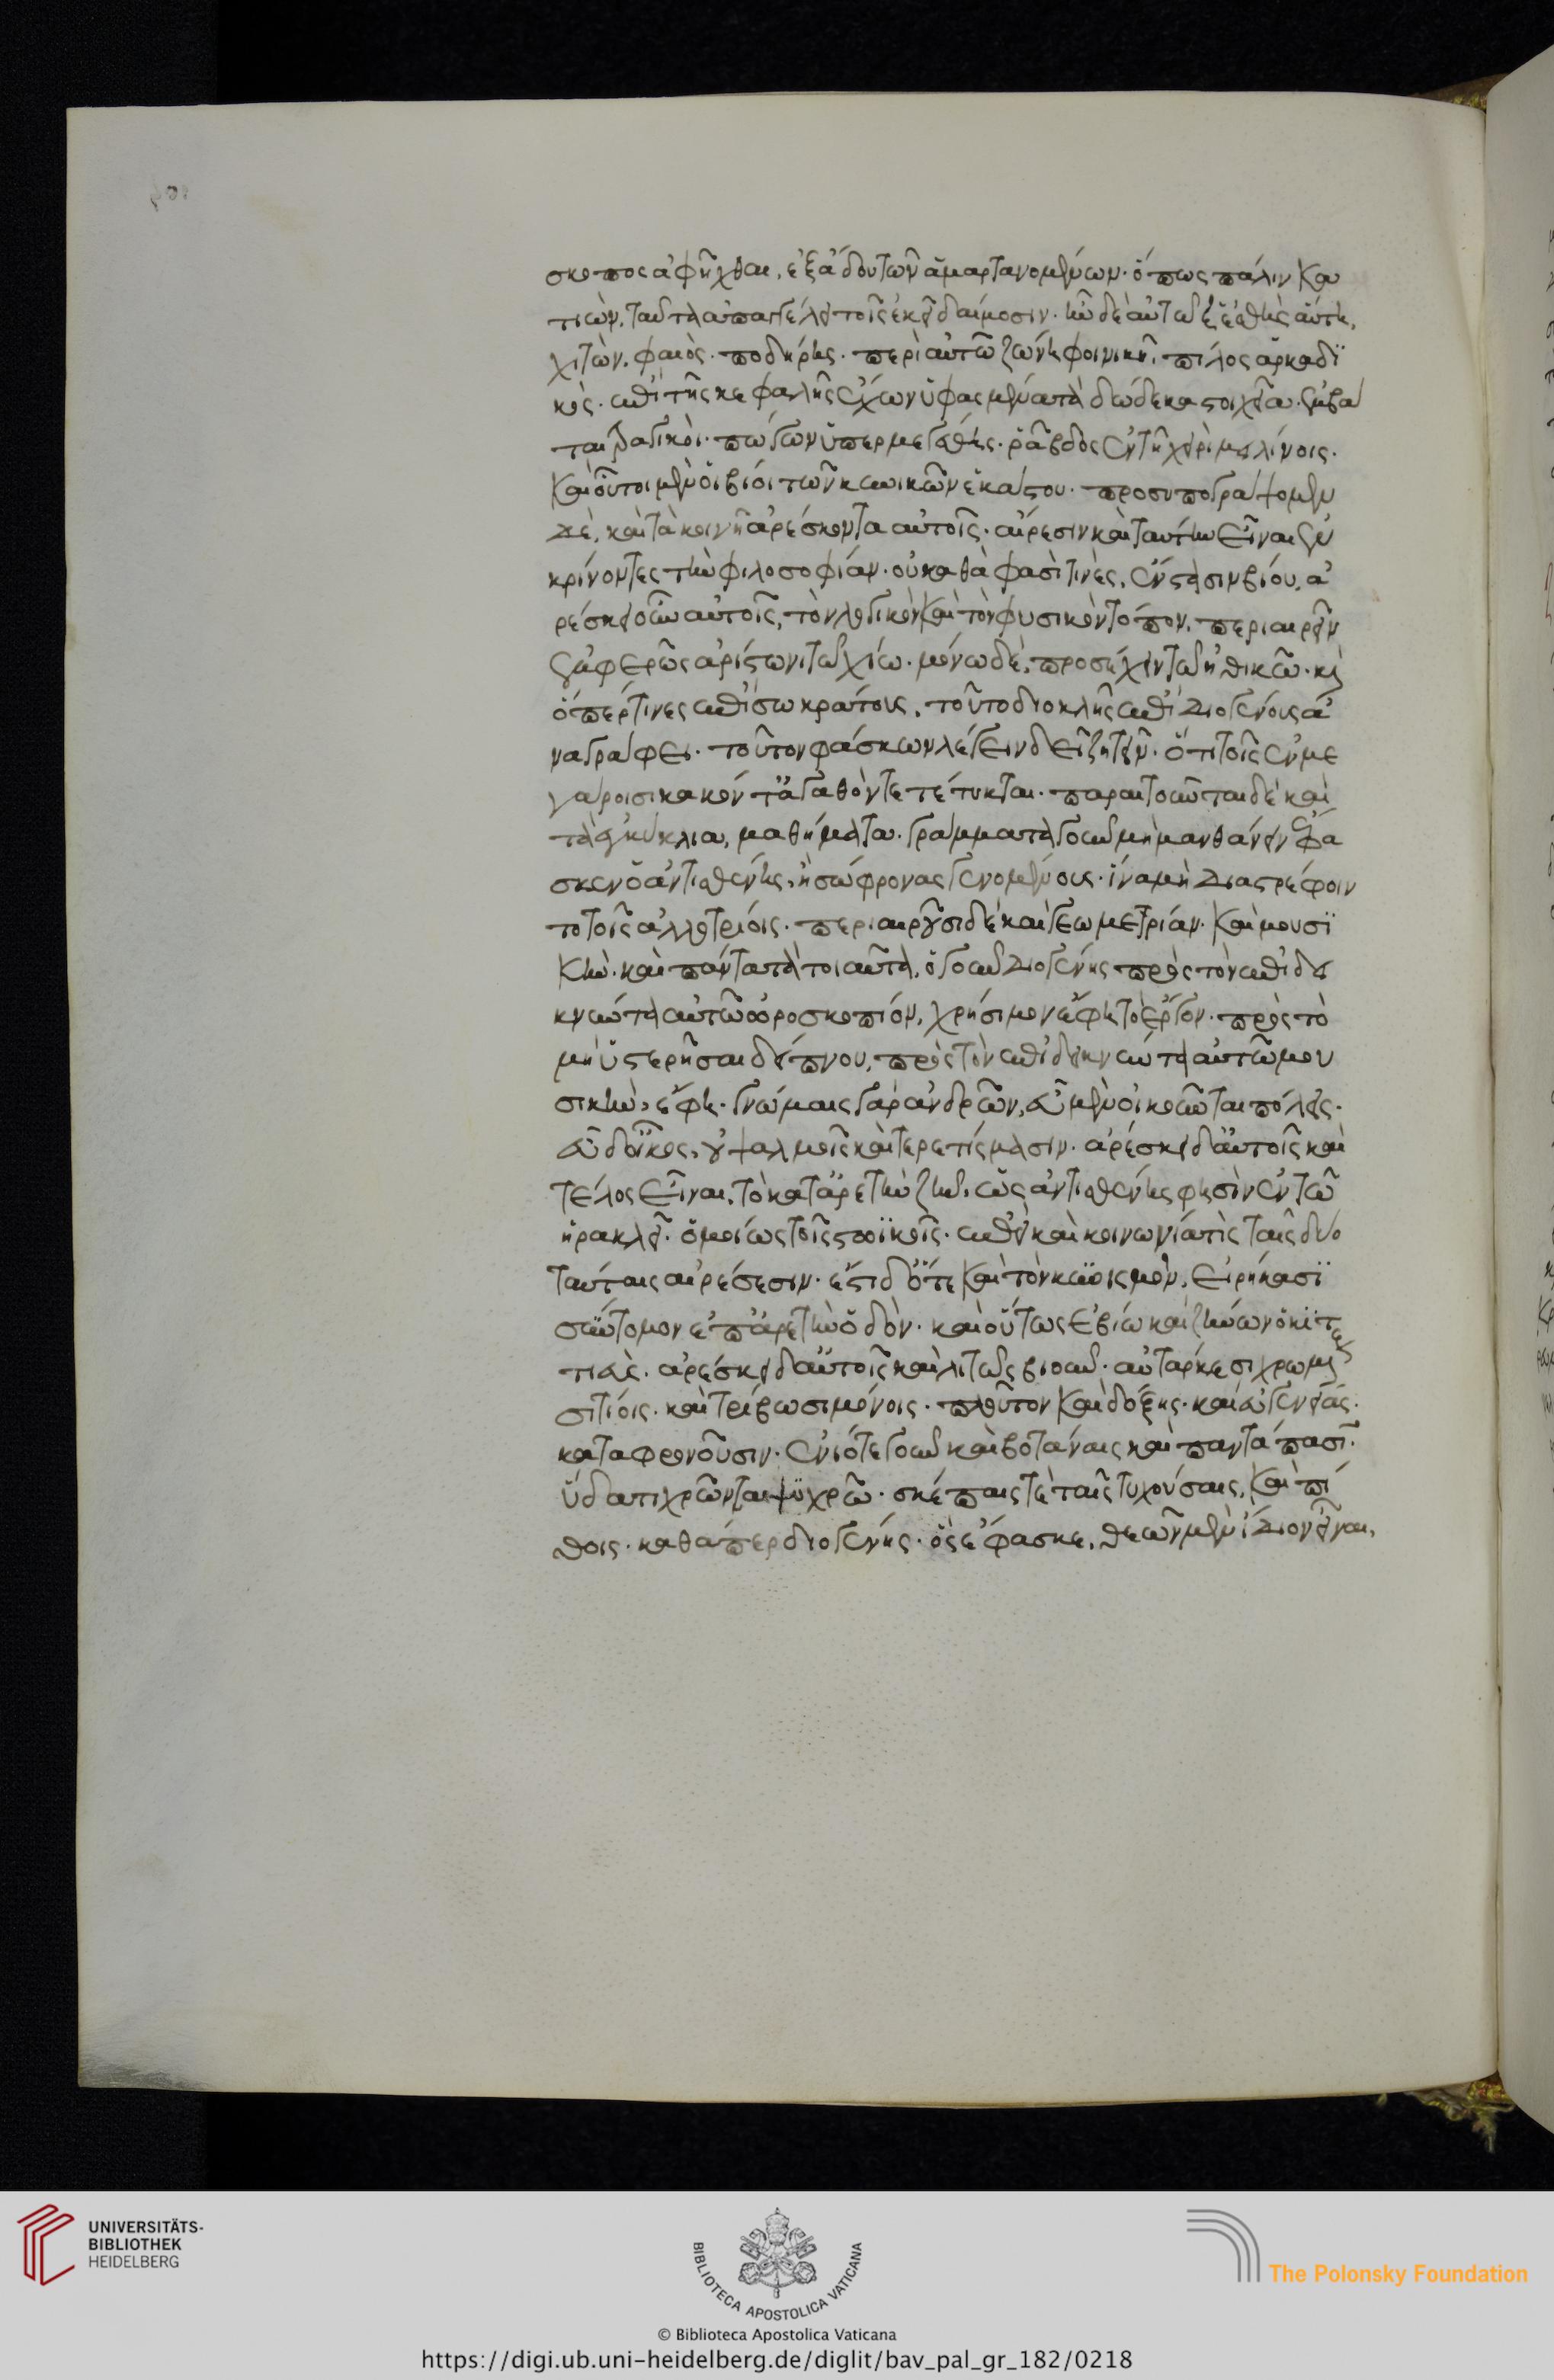 σκοπος ἀφῆχθαι, ἐξ ἅδου τῶν ἁμαρτανομένων· ὅπως πάλιν κα
τιὼν, ταῦτα ἀπαγγέλει τοῖς ἐκεῖ δαίμοσιν· ἦν δὲ αὐτῶ ἡ ἐσθὴς αὕτη,
χιτὼν, φαιὸς· ποδήρης· περὶ αὐτῶ ζώνη φοινικῆ, πῖλος ἀρκαδι
κὸς· ἐπὶ τῆς κεφαλῆς ἔχων ὑφασμένα τὰ δώδεκα στοιχεῖα· ἐμβά
ται τραγικοὶ· πώγων ὑπερμεγέθης· ῥάβδος ἐν τῆ χειρὶ μειλίνοις·
Καὶ οὗτοι μὲν οἱ βίοι τῶν κυνικῶν ἑκάστου· προσυπογράψομεν
δὲ, καὶ τὰ κοινῆ ἀρέσκοντα αὐτοῖς· αἵρεσιν καὶ ταύτην εἶναι ἐγ
κρίνοντες τὴν φιλοσοφίαν· οὐ καθὰ φασὶ τινὲς, ἔνστασιν βίου, ἀ
ρέσκει οὖν αὐτοῖς, τὸν λογικὸν καὶ τὸν φυσικὸν τόπον, περιαιρεῖν
ἐμφερῶς ἀρίστωνι τῶ χίω· μόνω δὲ, προσέχειν τῶ ἠθικῶ· καὶ
ὅπερ τινες ἐπὶ σωκράτους, τοῦτο διοκλῆς ἐπὶ διογένους ἀ
ναγράφει· τοῦτον φάσκων λέγειν δεῖ ζητεῖν· ὅτι τοῖς ἐν με
γάροισι κακόν τ' ἀγαθὸν τε τέτυκται· παραιτοῦνται δὲ καὶ
τὰ ἐγκύκλια, μαθήματα· γράμματα γοῦν μὴ μανθάνειν ἔφα
σκεν ὁ ἀντισθένης, ἢ σώφρονας γενομένους· ἵνα μὴ διαστρέφοιν
το τοῖς ἀλλοτρίοις· περιαιροῦσι δὲ καὶ γεωμετρίαν· καὶ μουσι
κὴν· καὶ πάντα τὰ τοιαῦτα, ὁ γοῦν διογένης πρὸς τὸν ἐπιδει
κνύντα αὐτῶ ὡροσκοπίον, χρήσιμον ἔφη τὸ ἔργον· πρὸς τὸ
μὴ ὑστερῆσαι δείπνου, πρὸς τὸν ἐπιδεικνύντα αὐτῶ μου
σικὴν, ἔφη· γνώμαις γὰρ ἀνδρῶν, εὖ μὲν οἰκοῦνται πόλεις·
εὖ δ' οἶκος, οὐ ψαλμοῖς καὶ τερετίσμασιν· ἀρέσκει δ' αὐτοῖς καὶ
τέλος εἶναι, τὸ κατ' ἀρετὴν ζῆν, ὡς ἀντισθένης φησὶν ἐν τῶ
ἡρακλεῖ· ὁμοίως τοῖς στωϊκοῖς· ἐπεὶ καὶ κοινωνία τὶς ταῖς δυσ
ταύταις αἱρέσεσιν· ἔστι δ' ὅτε καὶ τὸν κυνισμὸν, εἰρήκασι
σύντομον ἐπ' ἀρετὴν ὁδὸν· καὶ οὕτως ἐβίω καὶ ζήνων ὁ κιτ
τιεὺς· ἀρέσκει δ' αὐτοῖς καὶ λιτῶς βιοῦν· αὐτάρκεσι χρωμένοις
σιτίοις· καὶ τρίβωσι μόνοις· πλοῦτον καὶ δόξης· καὶ εὐγενείας·
καταφρονοῦσιν· ἐνιότε γοῦν καὶ βοτάναις καὶ παντάπασιν·
ὕδατι χρῶνται ψυχρῶ· σκέπαις τὲ ταῖς τυχούσαις, καὶ πί
θοις· καθάπερ διογένης· ὃς ἔφασκε, θεῶν μὲν ἴδιον εἶναι,
UNIVERSITÄTS-
BIBLIOTHEK
HEIDELBERG
BIBLIOTECA APOSTOLICA VATICANA
The Polonsky Foundation
© Biblioteca Apostolica Vaticana
https://digi.ub.uni-heidelberg.de/diglit/bav_pal_gr_182/0218